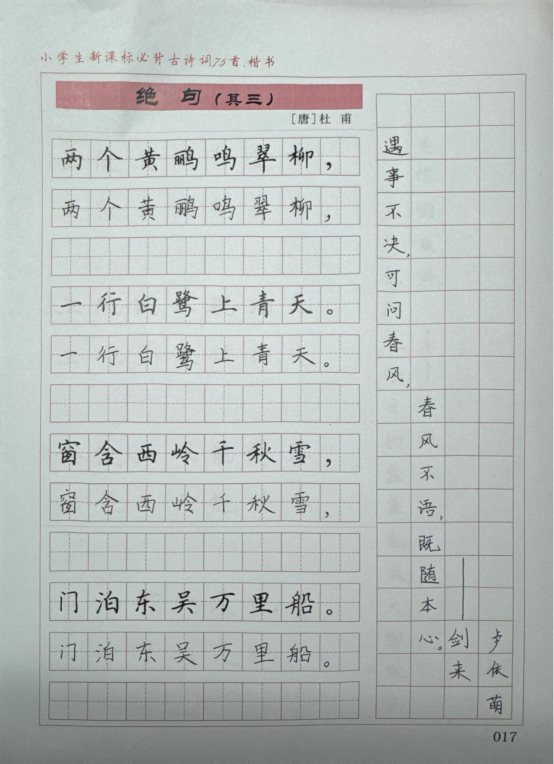 小学生新课标必背古诗词75首.楷书
绝句（其三）
[唐]杜甫
两个黄鹂鸣翠柳，
两个黄鹂鸣翠柳，
一行白鹭上青天。
一行白鹭上青天。
窗含西岭千秋雪，
窗含西岭千秋雪，
门泊东吴万里船。
门泊东吴万里船。
遇事不决，可问春风，
春风不语，既随本心。
——剑来
卢依萌
017